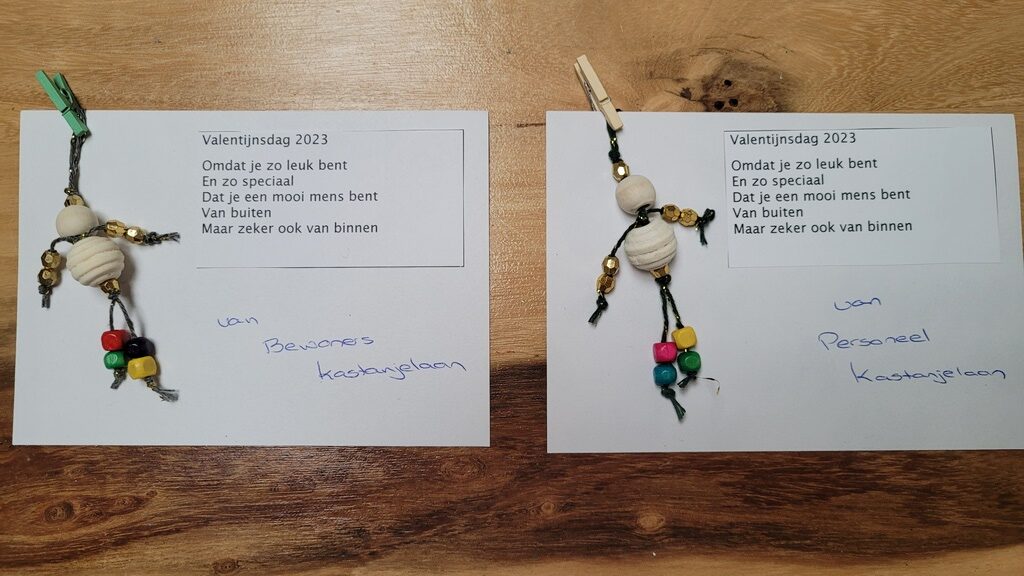 Valentijnsdag 2023
Omdat je zo leuk bent
En zo speciaal
Dat je een mooi mens bent
Van buiten
Maar zeker ook van binnen
van
Bewoners
Kastanjelaan
Valentijnsdag 2023
Omdat je zo leuk bent
En zo speciaal
Dat je een mooi mens bent
Van buiten
Maar zeker ook van binnen
van
Personeel
Kastanjelaan